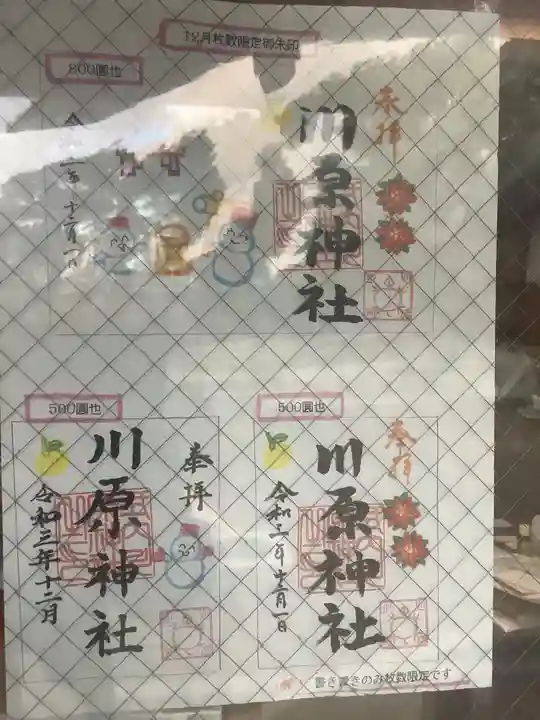 12月枚数限定御朱印
800圓也
奉拝
川原神社
500圓也
奉拝
川原神社
令和三年十二月
500圓也
奉拝
川原神社
令和三年十二月一日
書き置きのみ枚数限定です